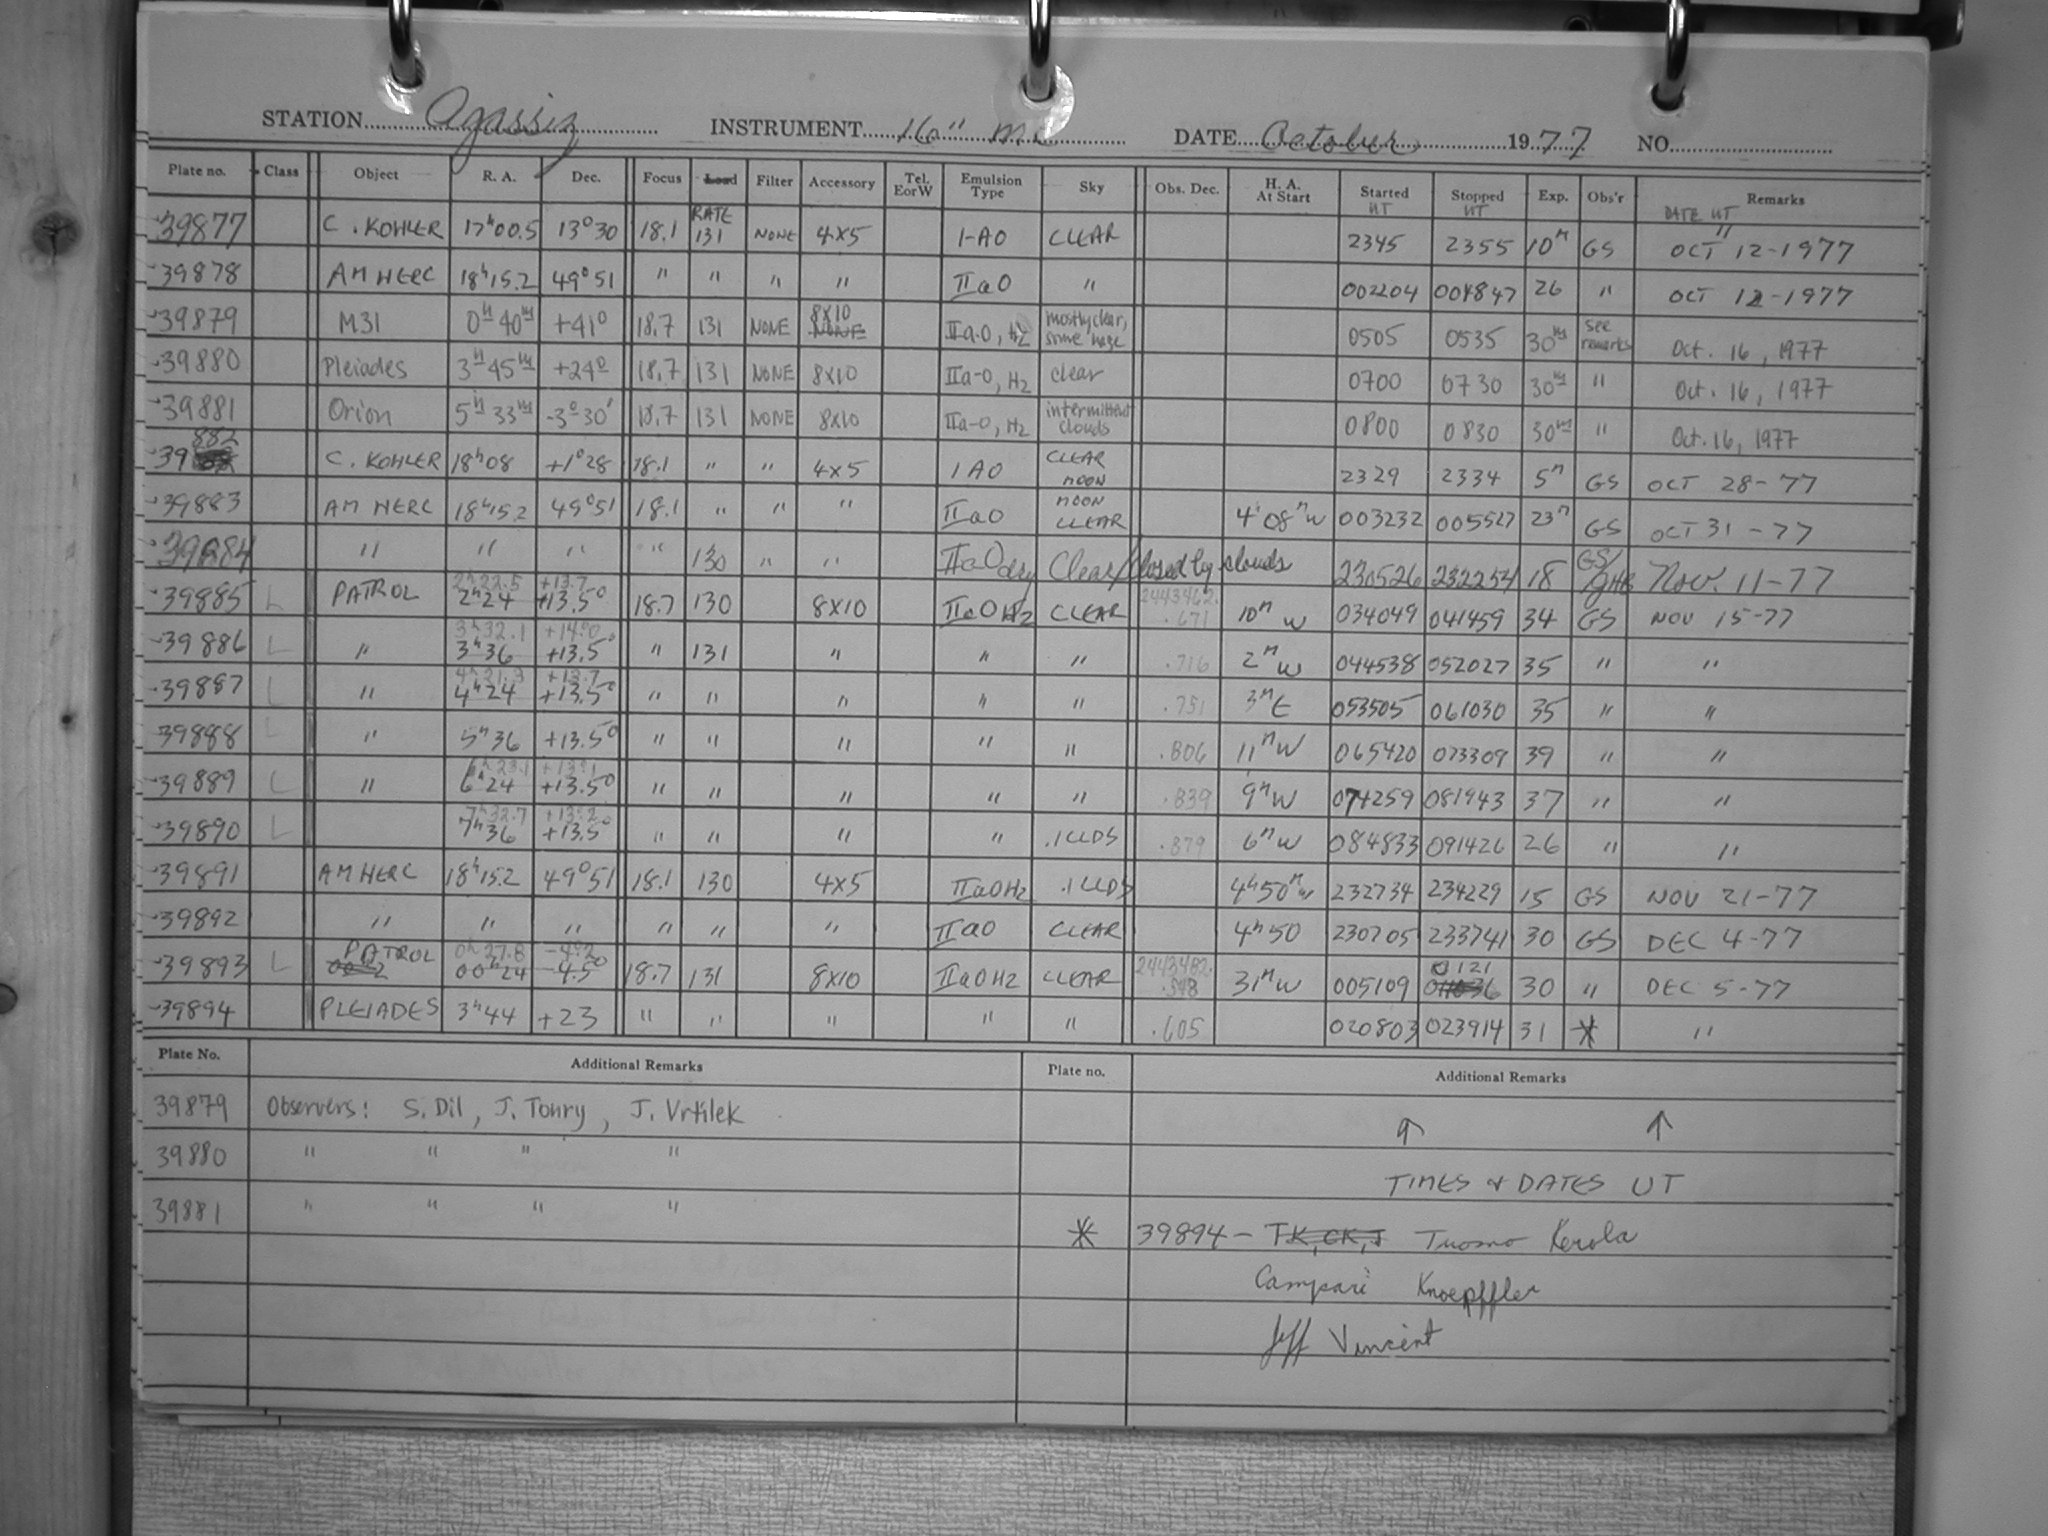 STATION Agassiz INSTRUMENT 16" DATE October 1977 NO.
Plate no. Class Object R. A. Dec. Focus Load Filter Accessory Tel. EorW Emulsion Type Sky Obs. Dec. H. A. At Start Started UT Stopped UT Exp. Obs'r DATE UT Remarks
RATE
39877 C. KOHLER 17h00.5 13°30 18.1 131 NONE 4x5 1-AO CLEAR 2345 2355 10m GS OCT 12-1977
39878 AM HERC 18h15.2 49°51 " " " " IIaO " 002204 004847 26 " OCT 12-1977
39879 M31 0h 40m +41° 18.7 131 NONE 8x10 NONE IIa-O, H2 mostly clear, some haze 0505 0535 30m see remarks Oct. 16, 1977
39880 Pleiades 3h 45m +24° 18.7 131 NONE 8x10 IIa-O, H2 clear 0700 0730 30m " Oct. 16, 1977
39881 Orion 5h 33m -3°30' 18.7 131 NONE 8x10 IIa-O, H2 intermittent clouds 0800 0830 30m " Oct. 16, 1977
39882 C. KOHLER 18h08 +1°28 18.1 " " 4x5 1AO CLEAR MOON 2329 2334 5m GS OCT 28-77
39883 AM HERC 18h15.2 49°51 18.1 " " " IIaO MOON CLEAR 4h08mW 003232 005527 23m GS OCT 31-77
39884 " " " " 130 " " IIaO dry Clear/closed by clouds 230526 232254 18 GS/GHR Nov. 11-77
39885 L PATROL 2h22.5 +13.7 2h24 +13.5° 18.7 130 8x10 IIaOH2 CLEAR 2443462. .671 10m W 034049 041459 34 GS NOV 15-77
39886 L " 3h32.1 +14.0 3h36 +13.5° " 131 " " " .716 2m W 044538 052027 35 " "
39887 L " 4h21.3 +13.7 4h24 +13.5° " " " " " .751 3m E 053505 061030 35 " "
39888 L " 5h36 +13.5° " " " " " .806 11m W 065420 073309 39 " "
39889 L " 6h23.1 +13.1 6h24 +13.5° " " " " " .839 9m W 074259 081943 37 " "
39890 L 7h32.7 +13.2 7h36 +13.5° " " " " .1 CLDS .879 6m W 084833 091426 26 " "
39891 AM HERC 18h15.2 49°51 18.1 130 4x5 IIaOH2 .1 CLDS 4h50m W 232734 234229 15 GS NOV 21-77
39892 " " " " " " IIaO CLEAR 4h50 230705 233741 30 GS DEC 4-77
39893 L PATROL 0h27.8 -4.2 00h24 -4.5° 18.7 131 8x10 IIaOH2 CLEAR 2443482. .548 31m W 005109 0121 30 " DEC 5-77
39894 PLEIADES 3h44 +23 " " " " " .605 020803 023914 31 * "
Plate No. Additional Remarks Plate no. Additional Remarks
39879 Observers: S. Dil, J. Tonry, J. Vrtilek
39880 " " " "
39881 " " " "
↑ ↑
TIMES & DATES UT
* 39894 - TK, CK, J Tuomo Kerola
Campari Knoepffler
Jeff Vincent